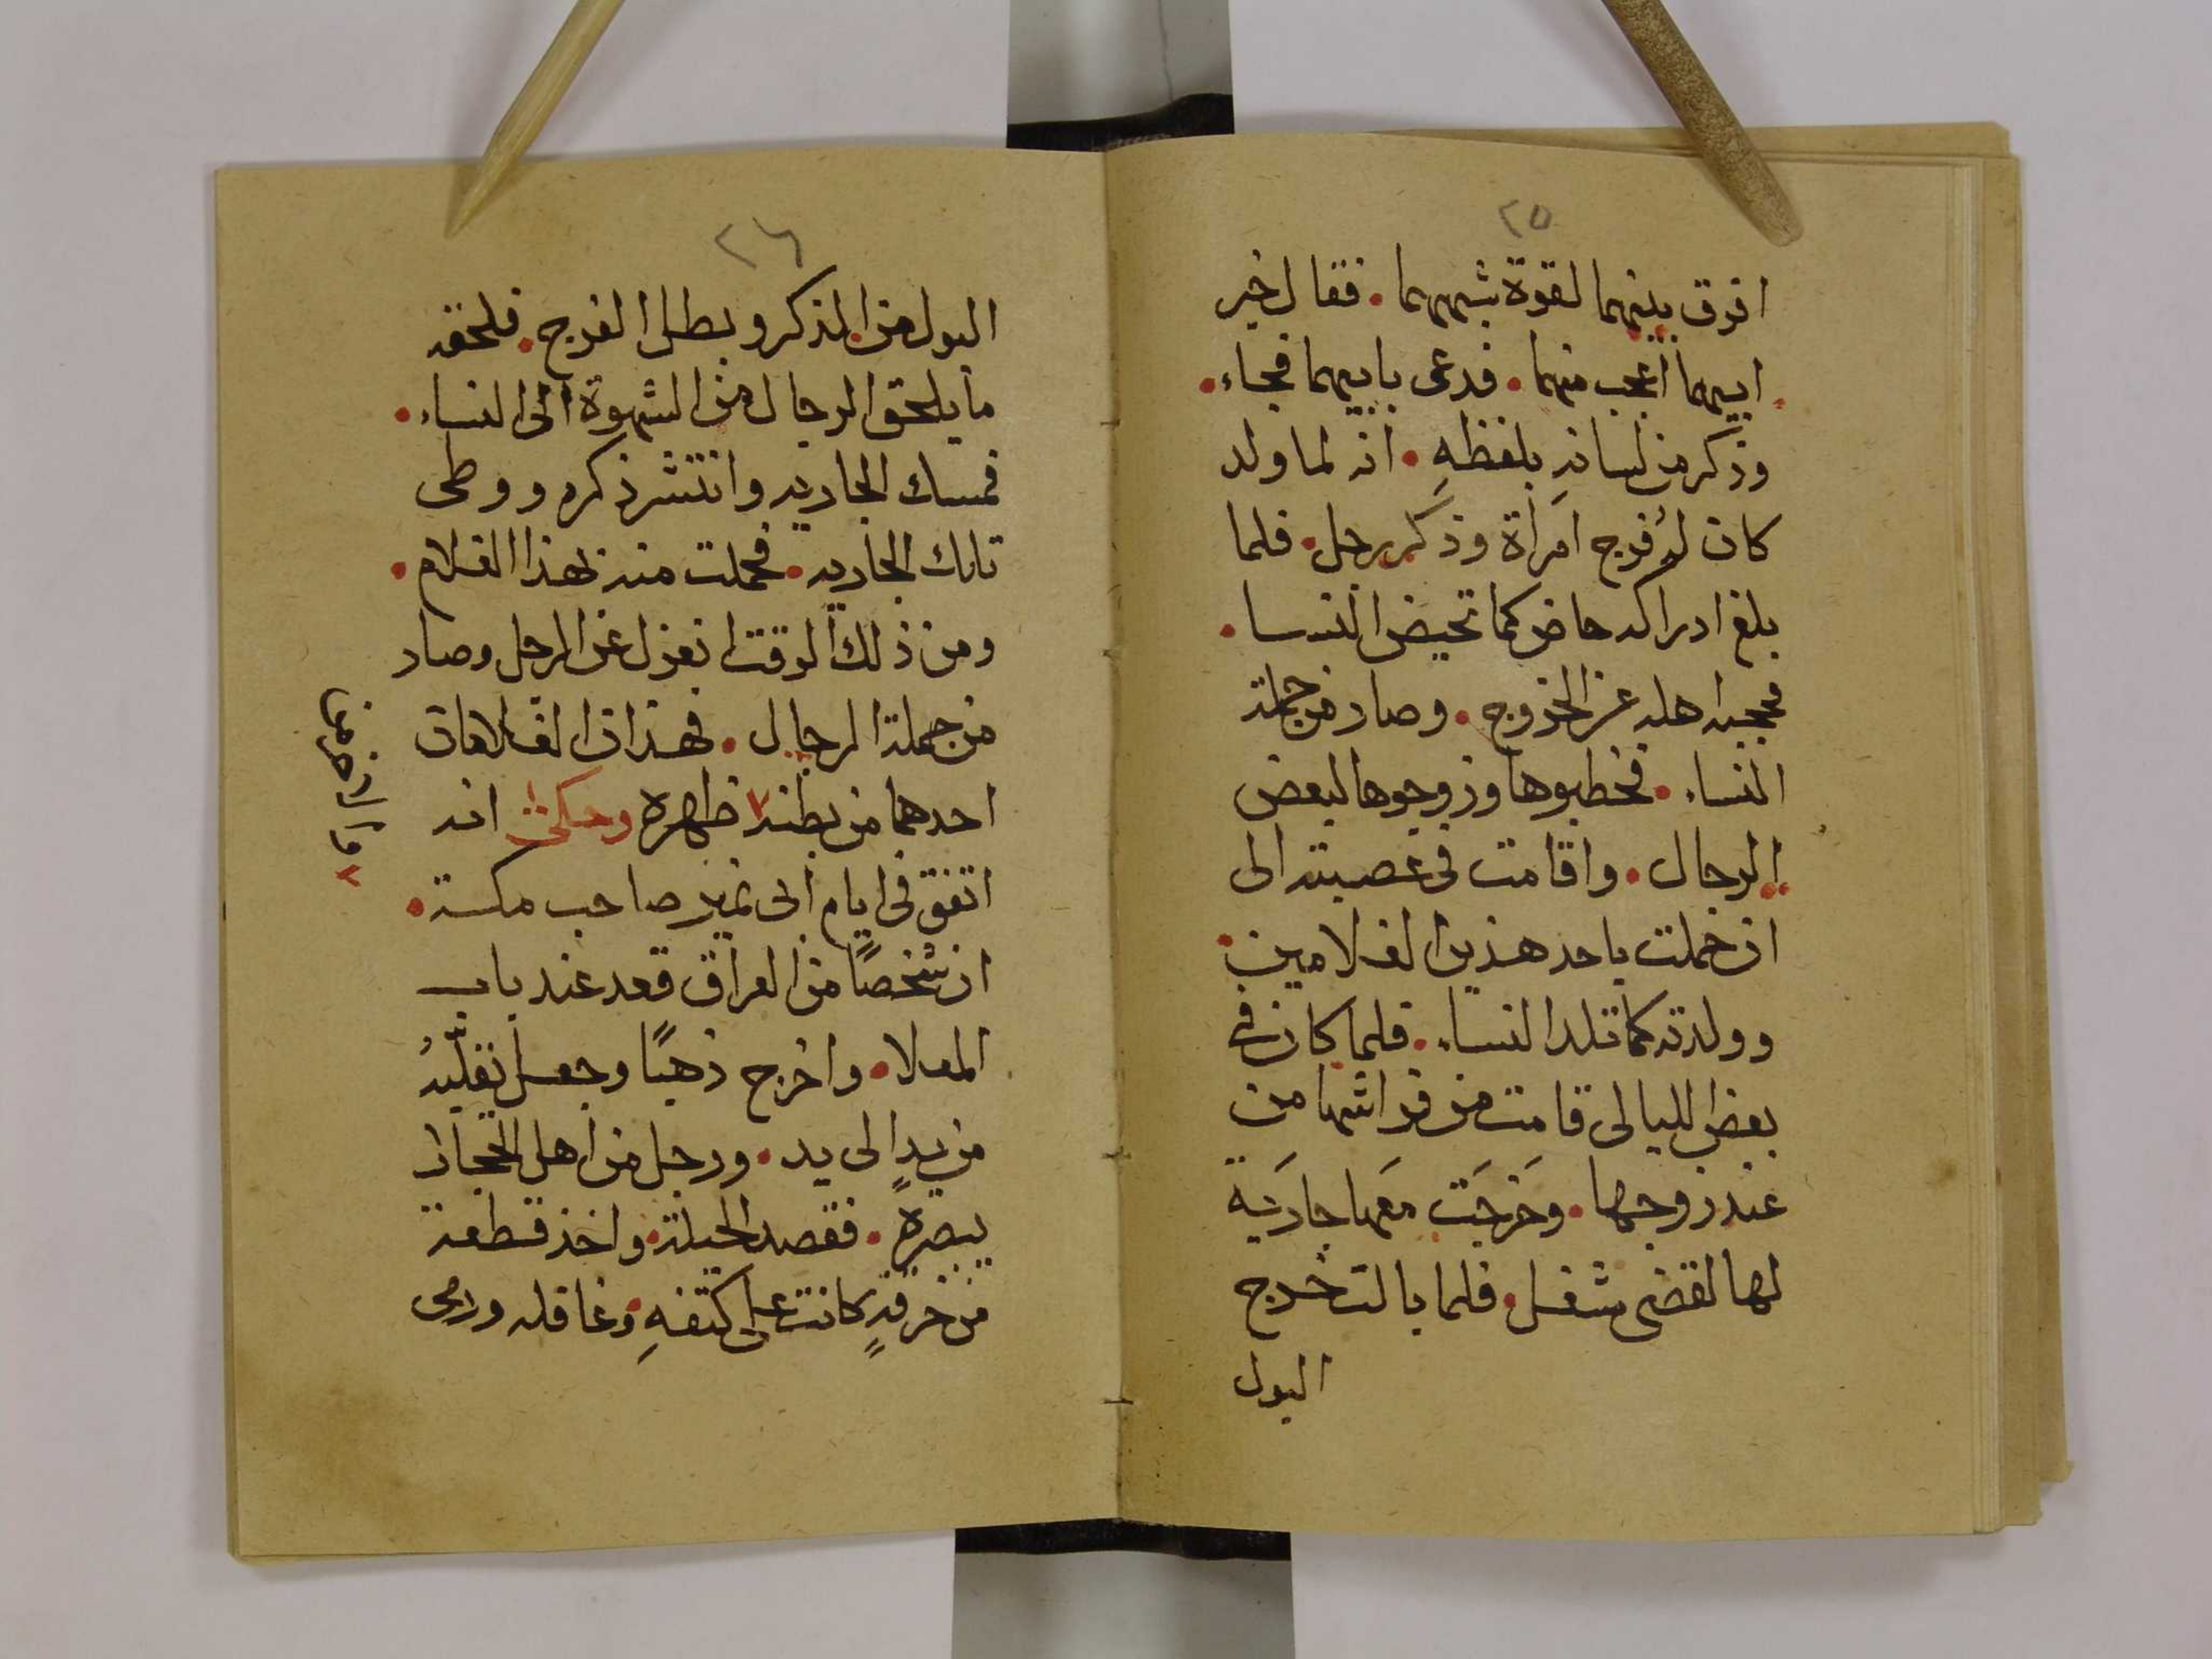 ٢٥
افرق بينهما لقوة شبههما . فقال خبر
ابيهما اعجب منهما . فدعى بابيهما فجاء .
وذكر من لسانهِ بلفظهِ . انه لما ولد
كان لهُ فرج امرَاة وذكر رجل . فلما
بلغ ادراكه حاض كما تحيض النسا .
فحجبه اهله عن الخروج . وصار من جملة
النساء . فخطبوها وزوجوها لبعض
الرجال . واقامت في عصبته الى
ان حملت باحد هذين الغلامين .
وولدته كما تلد النساء . فلما كان في
بعض الليالى قامت من فراشها من
عند زوجها . وَخرجَت معَها جاريَة
لها لقضى شغل . فلما بالت خرج
البول
٢٦
البول من الذكر وبطل الفرج . فلحقه
ما يلحق الرجال من الشهوة الى النساء .
فمسك الجاريه وانتشر ذكره ووطى
تلك الجاريه . فحملت منه بهذا الغلام .
ومن ذلك الوقت انعزل عن الرجل وصار
من جملة الرجال . فهذان الغلامان
احدهما من بطنه ٢ ظهره وحكى انه
اتفق فى ايام ابى نمير صاحب مكة .
ان شخصًا من العراق قعد عند باب
المعلا . واخرج ذهبًا وجعل يقلّبهُ
من يدٍ الى يد . ورجل من اهل الحجاز
يبصره . فقصد الحيلة . واخذ قطعة
من خرقةٍ كانت على كتفهِ . وغافله ورمى
٢ والاخر من